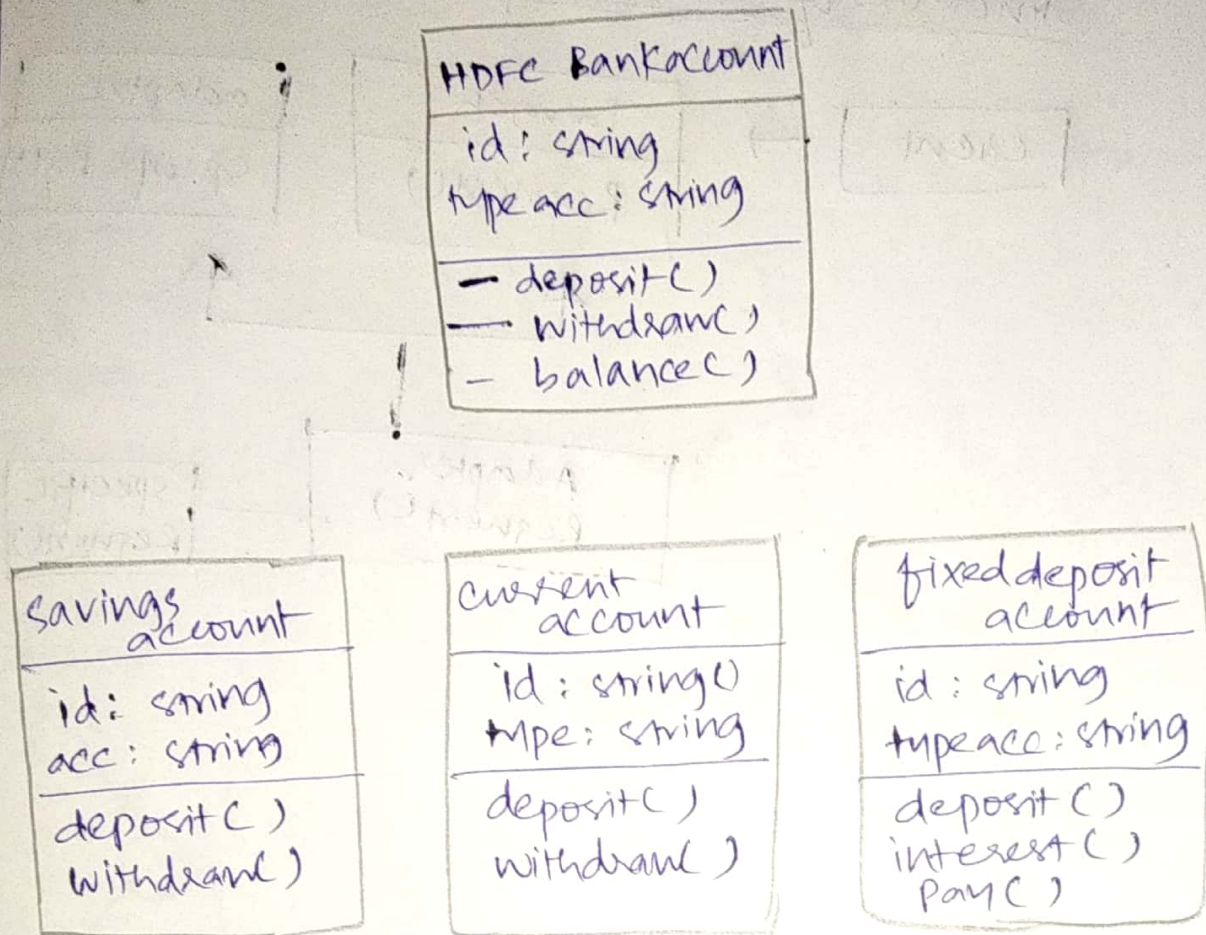 HDFC Bankaccount
id: string
type acc: string
- deposit()
- withdraw()
- balance()
savings
account
id: string
acc: string
deposit()
withdraw()
current
account
id: string()
type: string
deposit()
withdraw()
fixed deposit
account
id: string
typeacc: string
deposit()
interest()
pay()